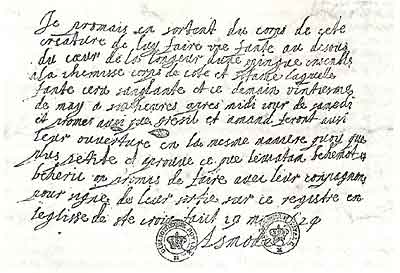 Je promais en sortant du corps de cete
creature de luy faire une fante au desous
du cœur de la longeur d'une pingue ensemble
a la chemisse corps de cote et
fante cera sanglante et ce demain vintiesme
de may a heures apres midi jour de samedi
et promes aussi que gresil et amand feront aussi
leur ouverture en la mesme maniere quoy que
plus petite et aprouve ce que leviatan behemot
beherie on promis de faire avec leur compagnon
pour signe de leur sortie sur ce registre en
l'eglise de ste croix faict 19 may
Asmodee